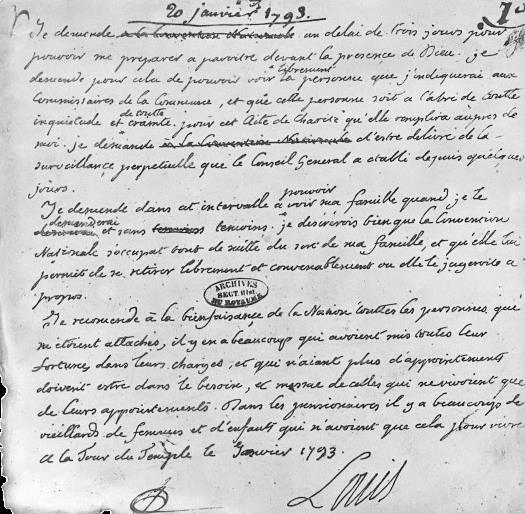 20 janvier 1793.
Je demende a la Convention Nationale un delai de trois jours pour
pouvoir me préparer a paroitre devant la presence de Dieu. je
demende pour cela de pouvoir voir librement la personne que j'indiquerai aux
Commissaires de la Commune, et que cette personne soit a l'abri de toutte
inquietude et de toutte crainte pour cet Acte de Charité qu'elle remplira aupres de
moi. je demande a la Convention Nationale d'estre delivré de la
surveillance perpetuelle que le Conseil General a etabli depuis quelques
jours.
Je demende dans cet intervalle a pouvoir voir ma famille quand je le
demanderai et sans temoins temoins. je desirerois bien que la Convention
Nationale s'occupat tout de suitte du sort de ma famille, et qu'elle lui
permit de se retirer librement et convenablement ou elle le jugeroit a
propos.
ARCHIVES
SECT. HIST.
DU ROYAUME
Je recomende à la bienfaisance de la Nation touttes les personnes qui
m'etoient attachés, il y en a beaucoup qui avoient mis touttes leur
fortune, dans leurs charges, et qui n'aiant plus d'appointements
doivent estre dans le besoin, et mesme de celles qui ne vivoient que
de leurs appointements. Dans les pensionaires il y a beaucoup de
vieillards de femmes et d'enfants qui n'avoient que cela pour vivre
a la Tour du Temple le Janvier 1793.
Louis